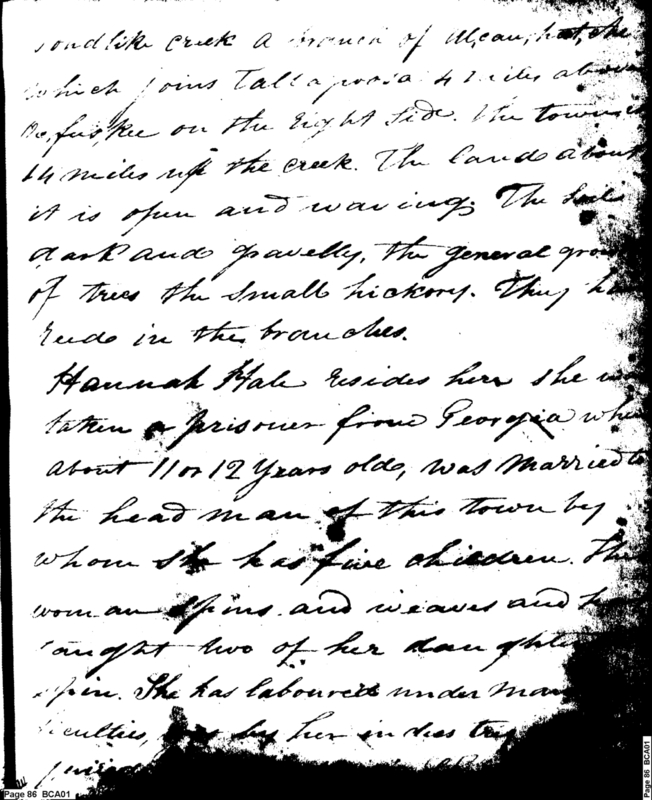 pondlike creek a branch of
which joins Tallapoosa 4 miles above
on the right side. The town is
14 miles up the creek. The land about
it is open and waving; The soil
dark and gravelly, the general
of trees the small hickory. They
reeds in the branches.
Hannah Hale resides here she
taken a prisoner from Georgia when
about 11 or 12 years old, was married to
the head man of this town by
whom she has five children. This
woman spins and weaves and
taught two of her
spin. She has laboured under
by her
Page 86 BCA01
Page 86 BCA01